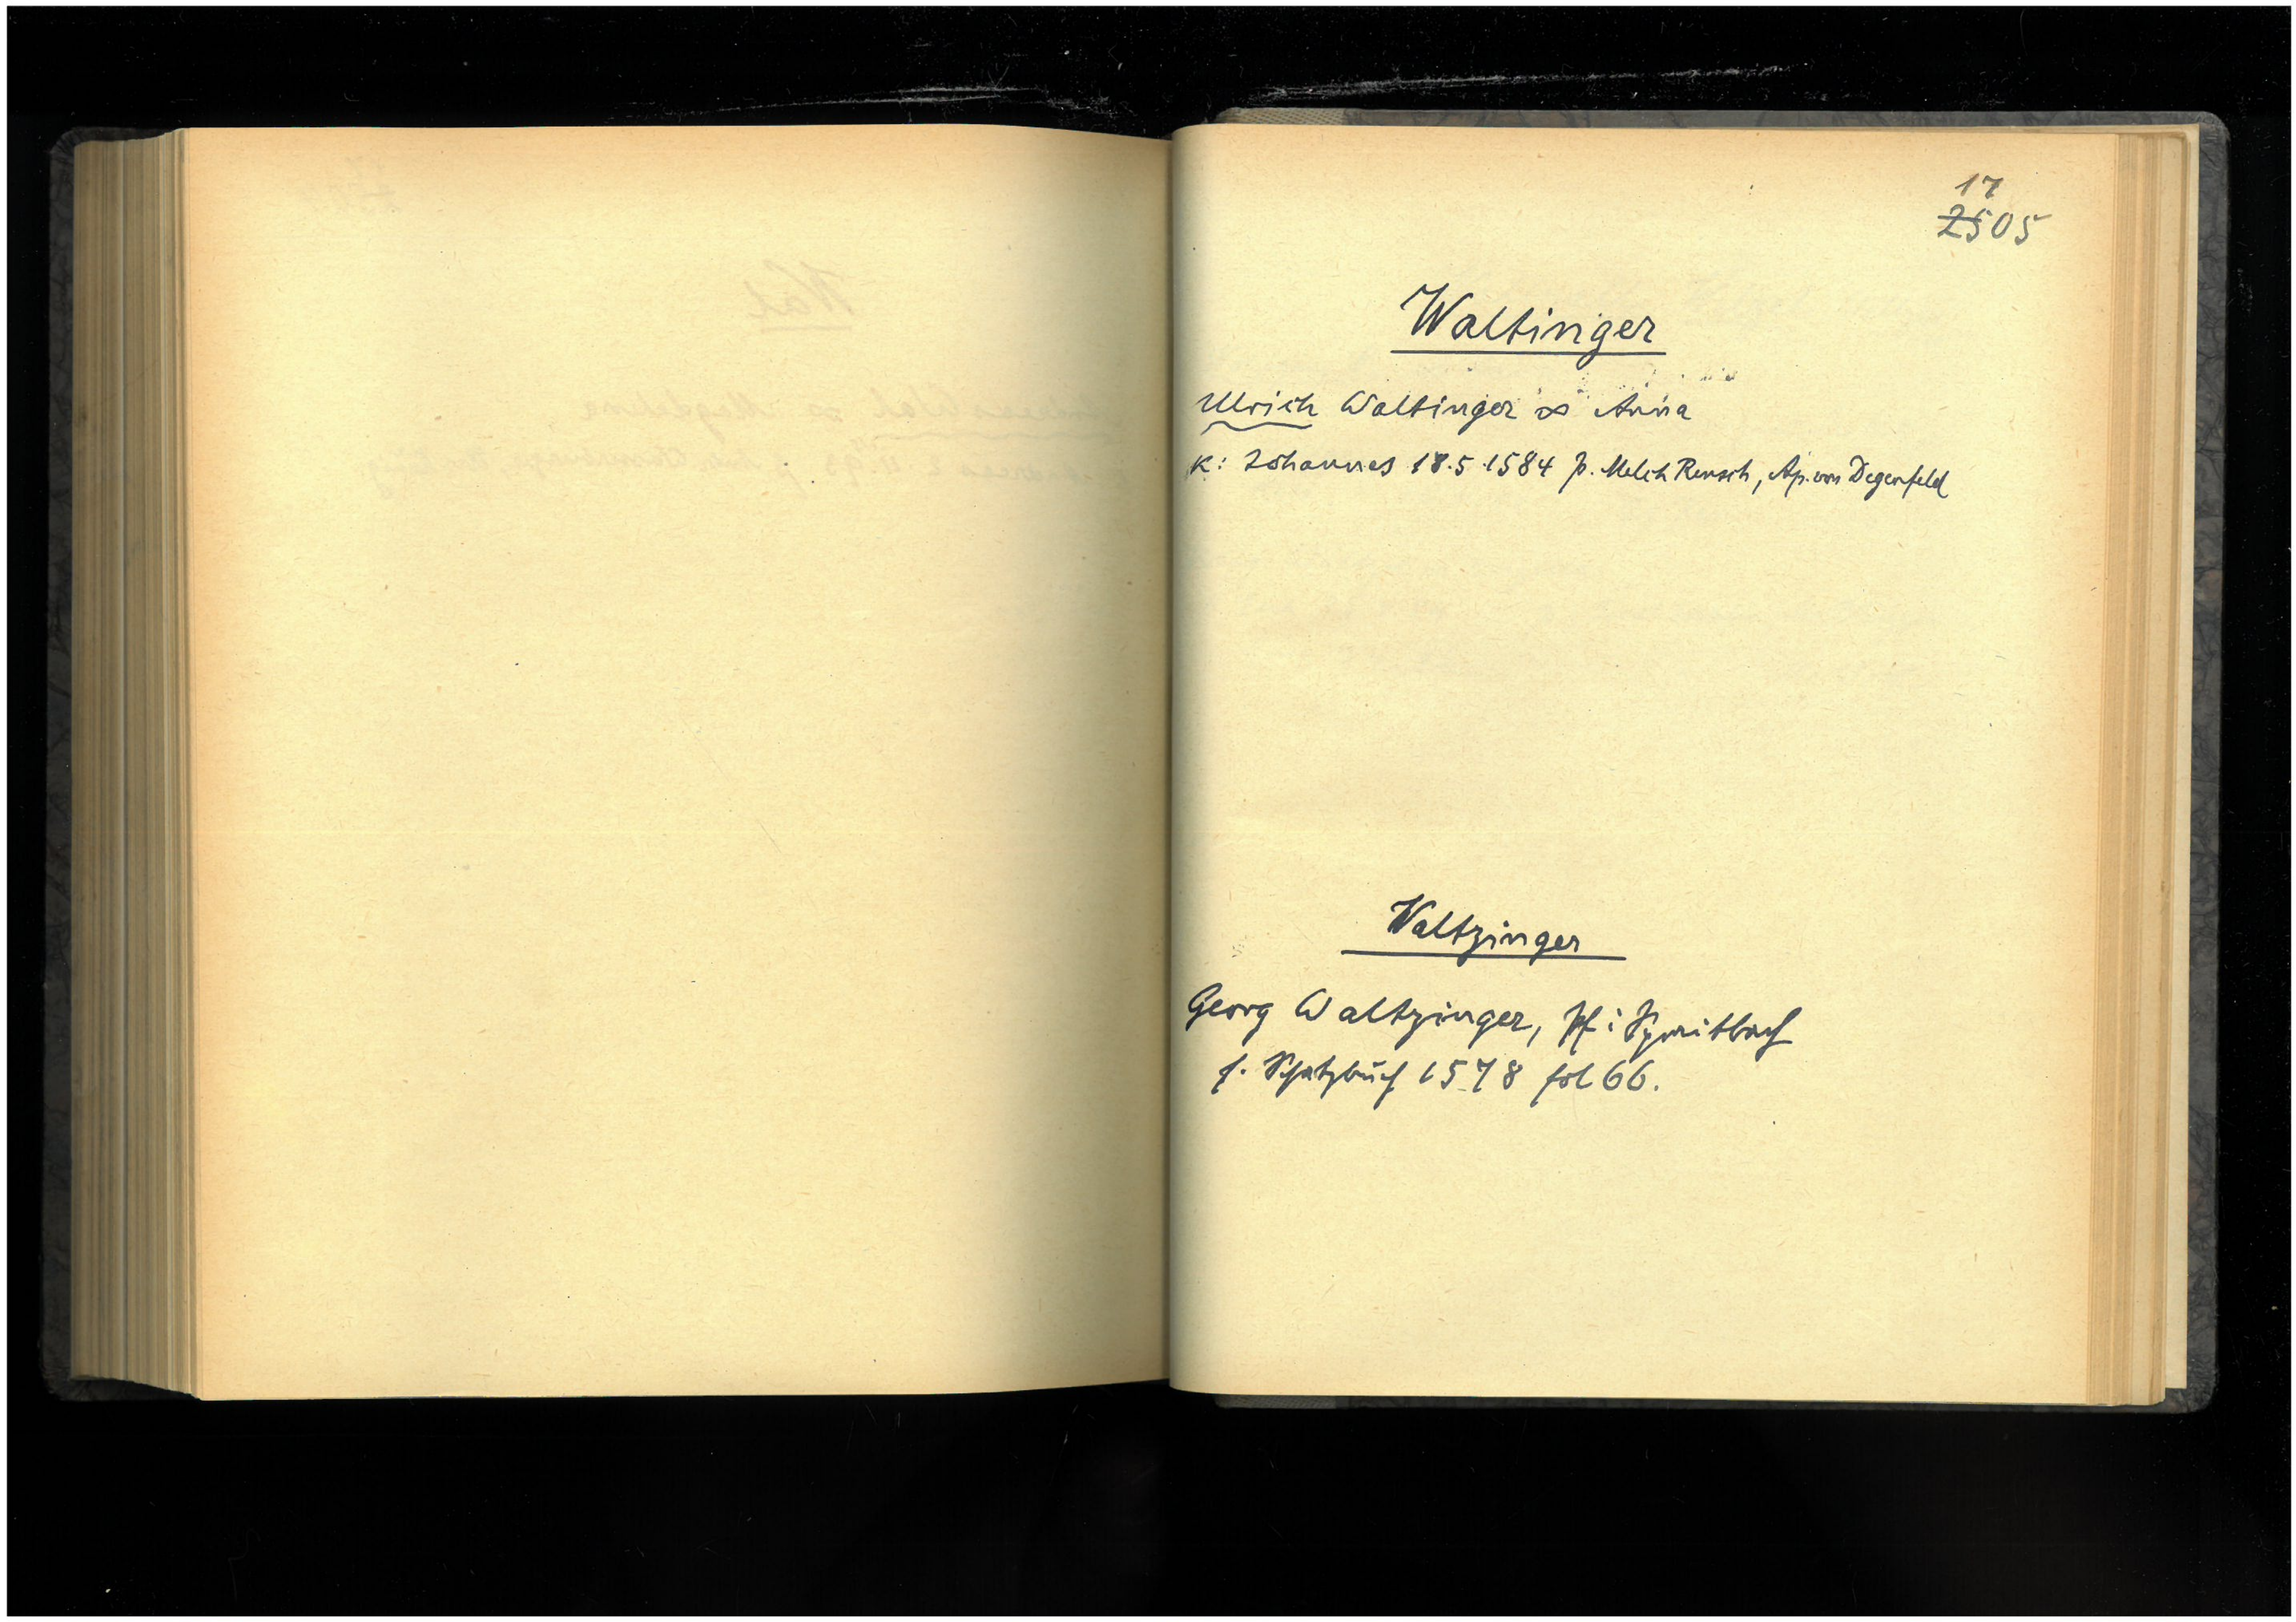 17
2505
Waltinger
Ulrich Waltinger ∞ Anna
K: Johannes 18.5.1584 p. Melch Rensch, Ap. von Degenfeld
Waltzinger
Georg Waltzinger, Pf i Spraitbach
s. Schatzbuch 1578 fol 66.